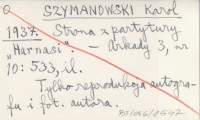 SZYMANOWSKI Karol
1937. Strona z partytury
"Harnasi". — Arkady 3, nr
10: 533, il.
Tylko reprodukcja autogra-
fu i fot. autora.